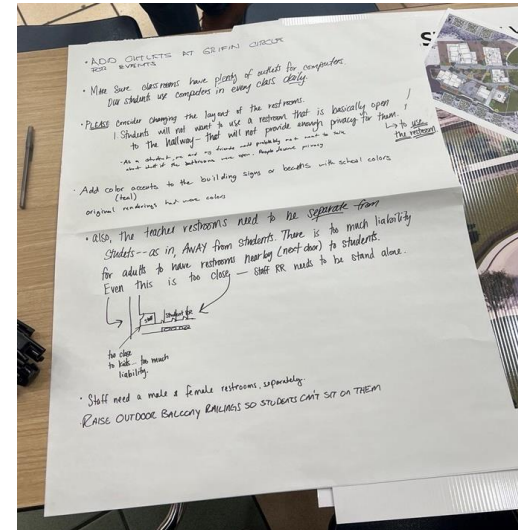 • ADD OUTLETS AT GRIFFIN CIRCLE
EVENTS
• Make Sure classrooms have plenty of outlets for computers.
Our students use computers in every class daily.
• PLEASE consider changing the layout of the restrooms.
! Students will not want to use a restroom that is basically open
to the hallway - that will not provide enough privacy for them. !
to use
the restroom.
-As a student, me and my friends would probably not want to
if the bathrooms were open. People deserve privacy
• Add color accents to the building signs or benches with school colors
(teal)
original renderings had more colors
• also, the teacher restrooms need to be separate from
Students -- as in, AWAY from students. There is too much liability
for adults to have restrooms nearby (next door) to students.
Even this is too close, — Staff RR needs to be stand alone.
too close
to kids... too much
liability.
• Staff need a male & female restrooms, separately.
RAISE OUTDOOR BALCONY RAILINGS SO STUDENTS CAN'T SIT ON THEM